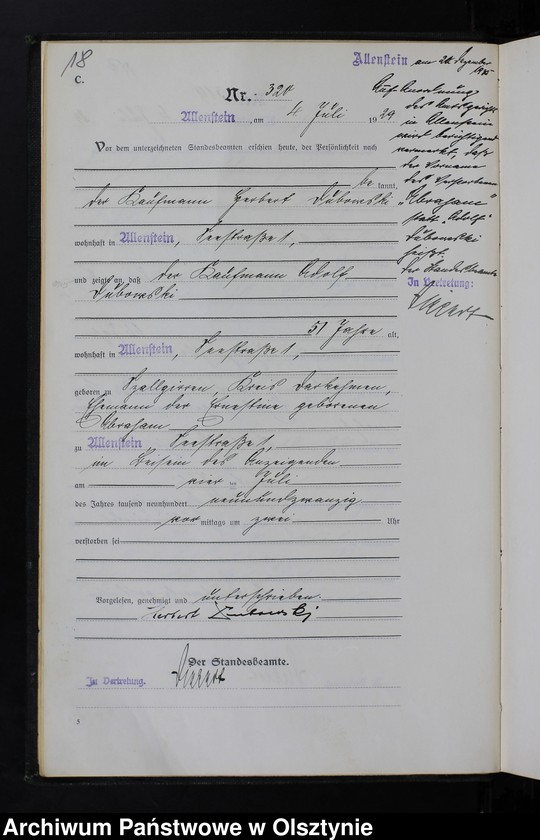 18
C.
Nr. 320
Allenstein, am 4 Juli 1929
Vor dem unterzeichneten Standesbeamten erschien heute, der Persönlichkeit nach
be kannt,
der Kaufmann Herbert Dubowski
wohnhaft in Allenstein, Seestraße 1,
und zeigte an, daß der Kaufmann Adolf
Dubowski
51 Jahre alt,
wohnhaft in Allenstein, Seestraße 1,
geboren zu Szallgirren, Kreis Darkehmen,
Ehemann der Ernestine geborenen
Abraham
zu Allenstein, Seestraße 1,
im Beisein des Anzeigenden
am vier ten Juli
des Jahres tausend neunhundert neunundzwanzig
vor mittags um zwei Uhr
verstorben sei
Vorgelesen, genehmigt und unterschrieben
Herbert Dubowski
Der Standesbeamte.
In Vertretung.
5
Allenstein am Dezember
Auf Anordnung
des Amtsgerichts
in Allenstein
wird berichtigend
vermerkt, daß
der Vorname
des Verstorbenen
„Abraham"
statt „Adolf"
Dubowski
heißt.
Der Standesbeamte
In Vertretung:
Archiwum Państwowe w Olsztynie